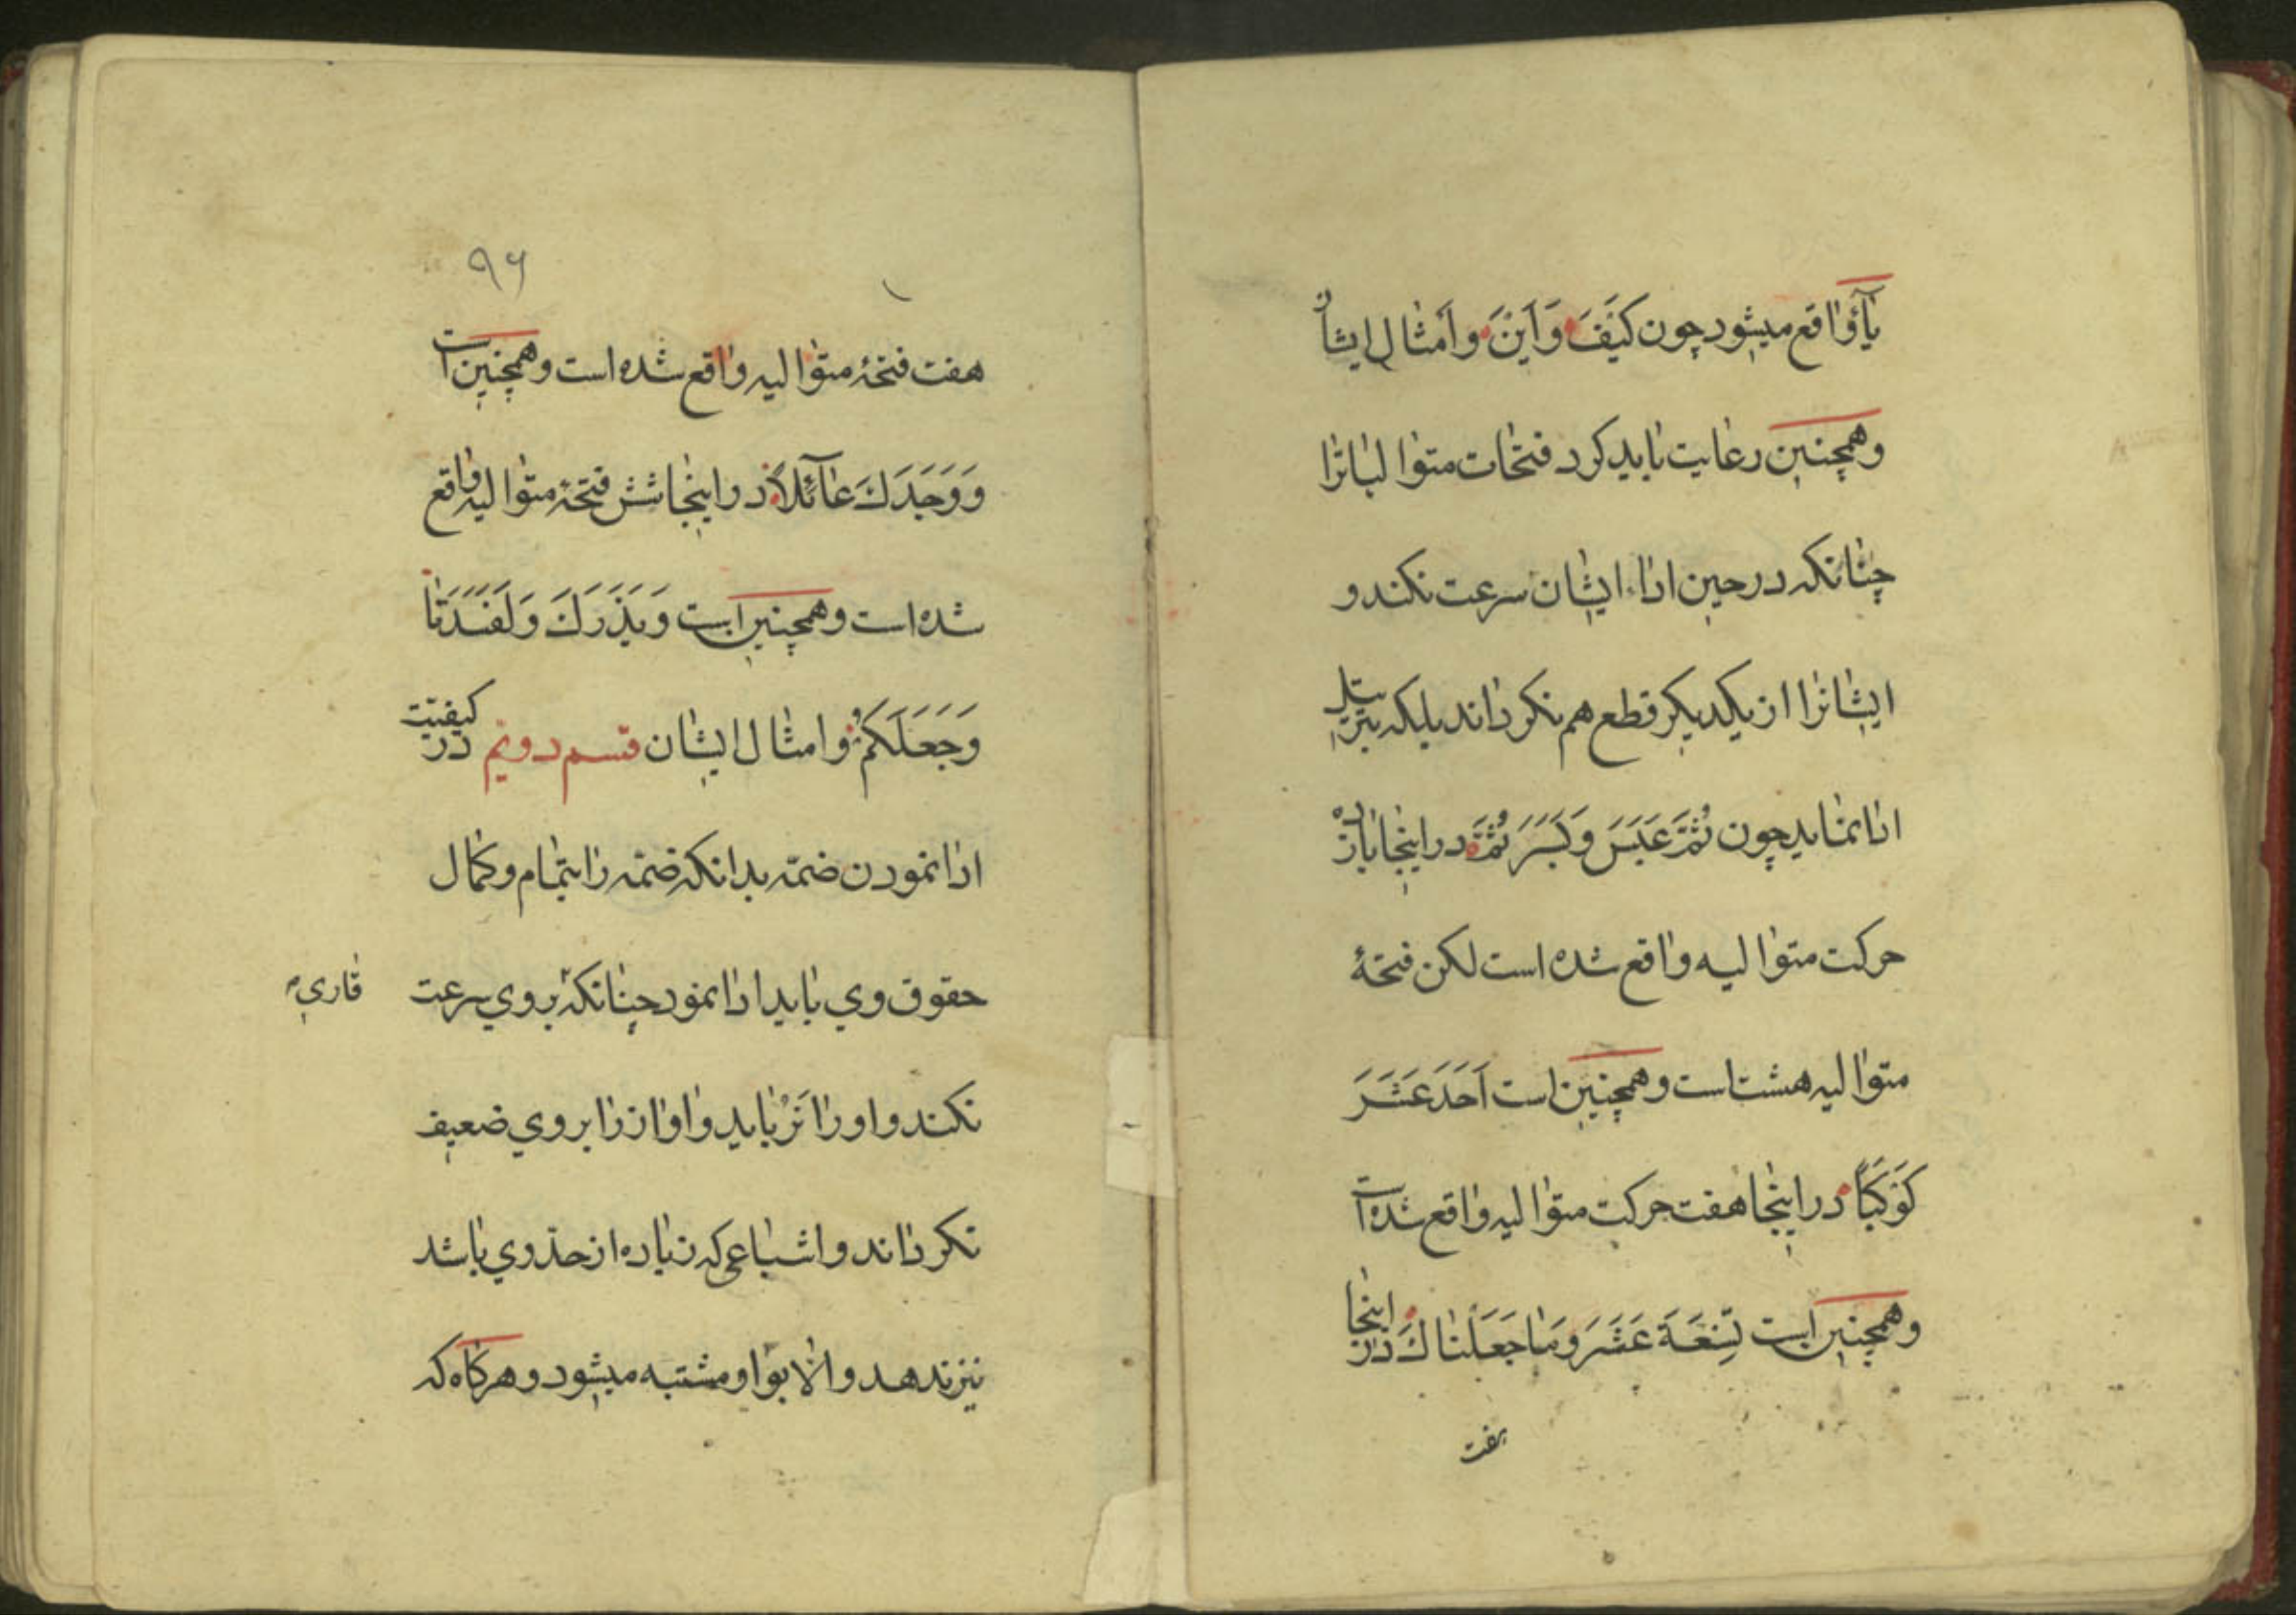 یا واقع میشود چون کَیْفَ وَاَیْنَ وامثال ایشان
وهمچنین رعایت باید کرد فتحات متوالیاترا
چنانکه در حین ادا ایشان سرعت نکند و
ایشانرا از یکدیکر قطع هم نکرداند بلکه بترتیل
ادا نماید چون ثُمَّ عَبَسَ وَبَسَرَ ثُمَّ در اینجا یازده
حرکت متوالیه واقع شده است لکن فتحهٔ
متوالیه هشتاست وهمچنین است اَحَدَ عَشَرَ
کَوْکَبًا در اینجا هفت حرکت متوالیه واقع شده است
وهمچنین است تِسْعَةَ عَشَرَ وَمَا جَعَلْنَاكَ در اینجا
هفت
۹۶
هفت فتحهٔ متوالیه واقع شده است وهمچنین است
وَوَجَدَكَ عَآئِلًا در اینجا شش فتحهٔ متوالیه واقع
شده است وهمچنین است وَیَذَرَكَ وَلَقَدْ
وَجَعَلَکُمْ وامثال ایشان قسم دویم در کیفیّت
ادا نمودن ضمّه بدانکه ضمّه را بتمام وکمال
حقوق وی باید ادا نمود چنانکه بروی سرعت
قاری
نکند واورا نرباید واوازرا بروی ضعیف
نکرداند واشباعی که زیاده از حدّ وی باشد
نیز ندهد والا بواو مشتبه میشود وهرکاه که